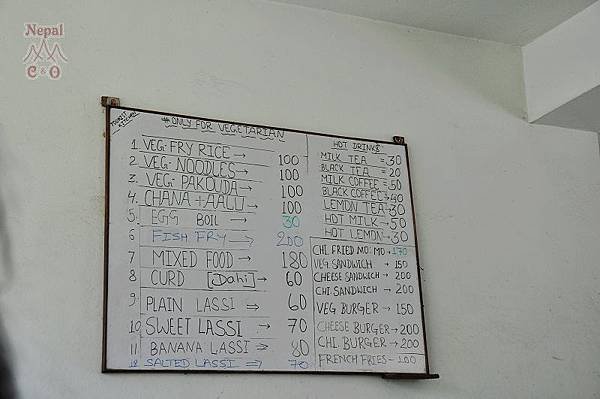 Nepal
C & O
# ONLY FOR VEGETARIAN
1. VEG. FRY RICE → 100
2. VEG. NOODLES → 100
3. VEG. PAKOUDA → 100
4. CHANA + AALU → 100
5. EGG BOIL 30
6 FISH FRY → 200
7 MIXED FOOD → 180
8 CURD [Dahi] → 60
9 PLAIN LASSI → 60
10 SWEET LASSI → 70
11 BANANA LASSI → 80
12 SALTED LASSI → 70
HOT DRINKS
MILK TEA = 30
BLACK TEA = 20
MILK COFFEE = 50
BLACK COFFEE = 40
LEMON TEA = 30
HOT MILK → 50
HOT LEMON → 30
CHI FRIED MO: MO → 170
VEG SANDWICH → 150
CHEESE SANDWICH → 200
CHI SANDWICH → 200
VEG BURGER → 150
CHEESE BURGER → 200
CHI. BURGER → 200
FRENCH FRIES - 100